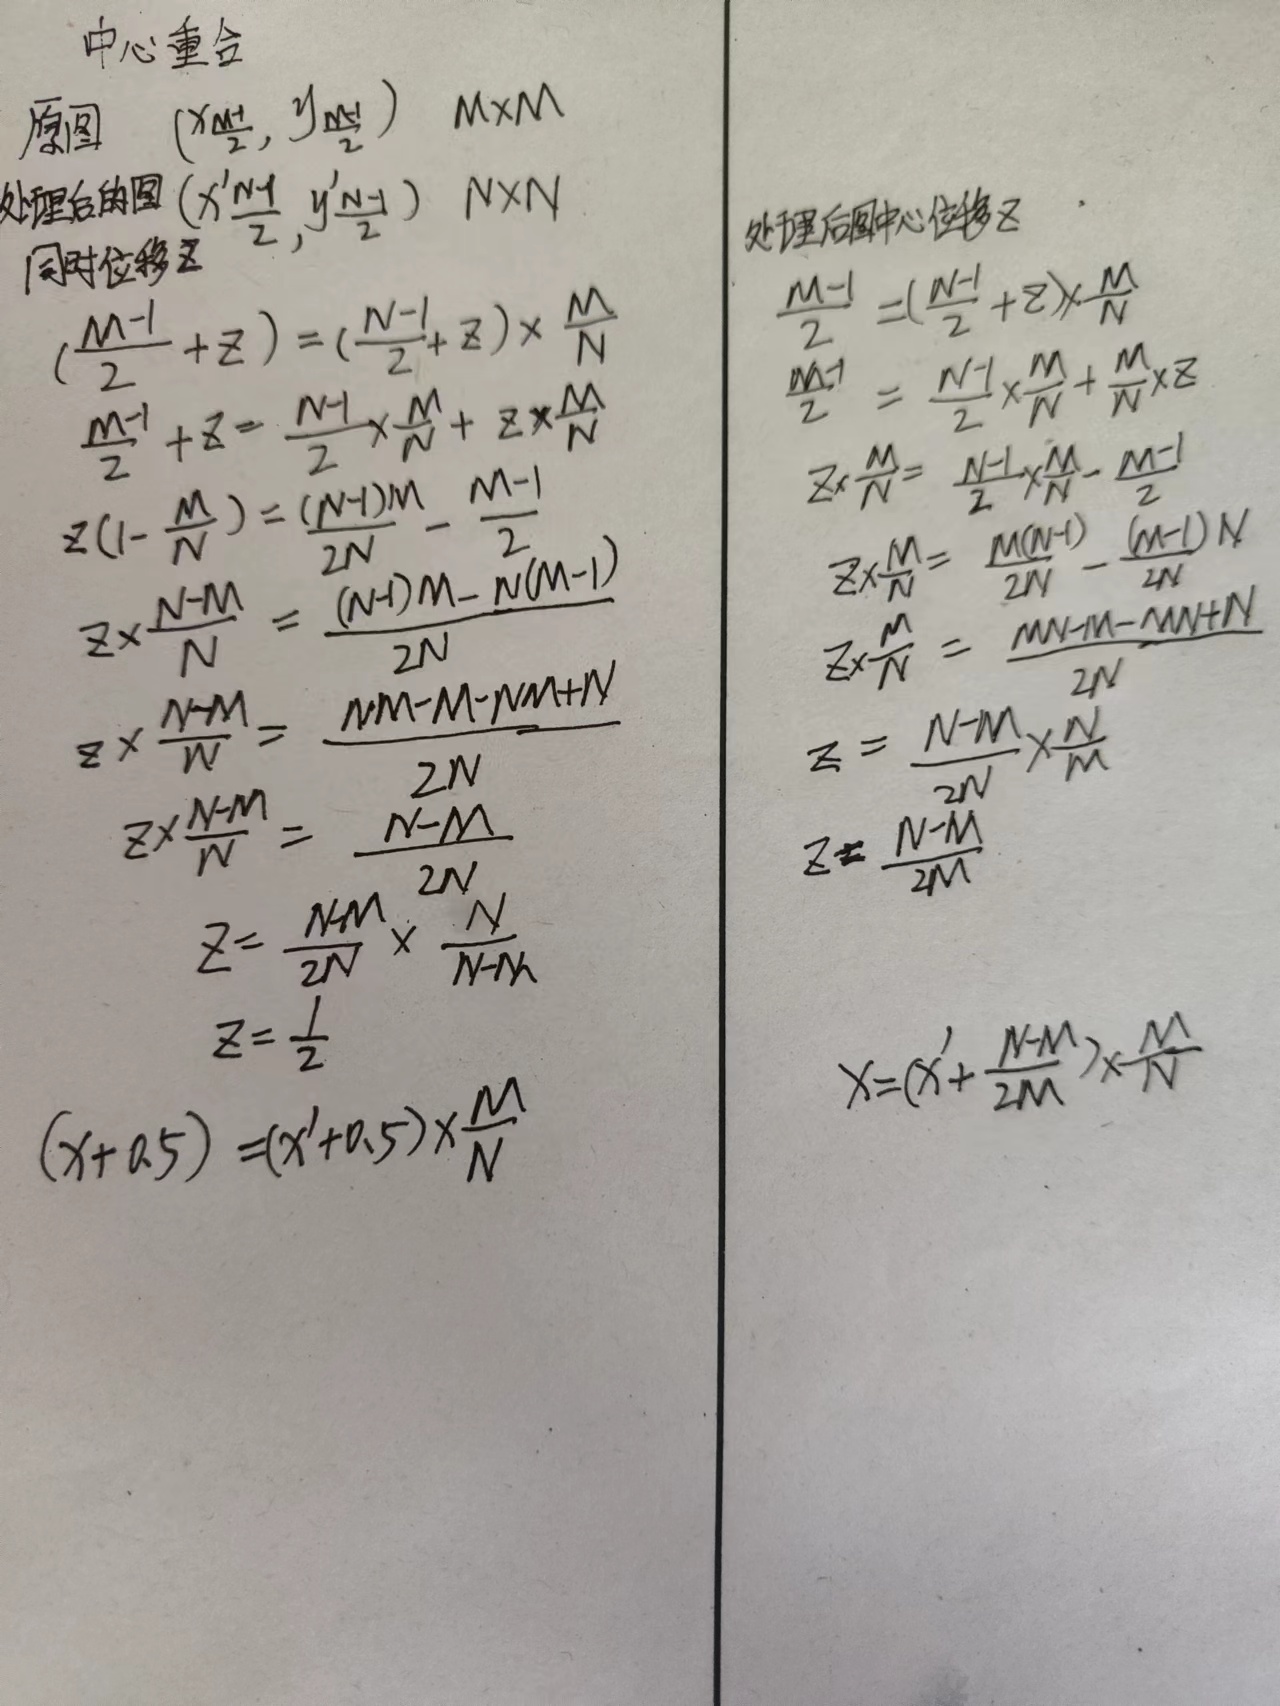 中心重合
原图 (x_{\frac{M-1}{2}}, y_{\frac{M-1}{2}}) M×M
处理后的图 (x'_{\frac{N-1}{2}}, y'_{\frac{N-1}{2}}) N×N
同时位移z
(\frac{M-1}{2}+z)=(\frac{N-1}{2}+z)×\frac{M}{N}
\frac{M-1}{2}+z=\frac{N-1}{2}×\frac{M}{N}+z×\frac{M}{N}
z(1-\frac{M}{N})=\frac{(N-1)M}{2N}-\frac{M-1}{2}
z×\frac{N-M}{N}=\frac{(N-1)M-N(M-1)}{2N}
z×\frac{N-M}{N}=\frac{NM-M-NM+N}{2N}
z×\frac{N-M}{N}=\frac{N-M}{2N}
z=\frac{N-M}{2N}×\frac{N}{N-M}
z=\frac{1}{2}
(x+0.5)=(x'+0.5)×\frac{M}{N}
处理后图中心位移z
\frac{M-1}{2}=(\frac{N-1}{2}+z)×\frac{M}{N}
\frac{M-1}{2}=\frac{N-1}{2}×\frac{M}{N}+\frac{M}{N}×z
z×\frac{M}{N}=\frac{N-1}{2}×\frac{M}{N}-\frac{M-1}{2}
z×\frac{M}{N}=\frac{M(N-1)}{2N}-\frac{(M-1)N}{2N}
z×\frac{M}{N}=\frac{MN-M-MN+N}{2N}
z=\frac{N-M}{2N}×\frac{N}{M}
z=\frac{N-M}{2M}
x=(x'+\frac{N-M}{2M})×\frac{M}{N}